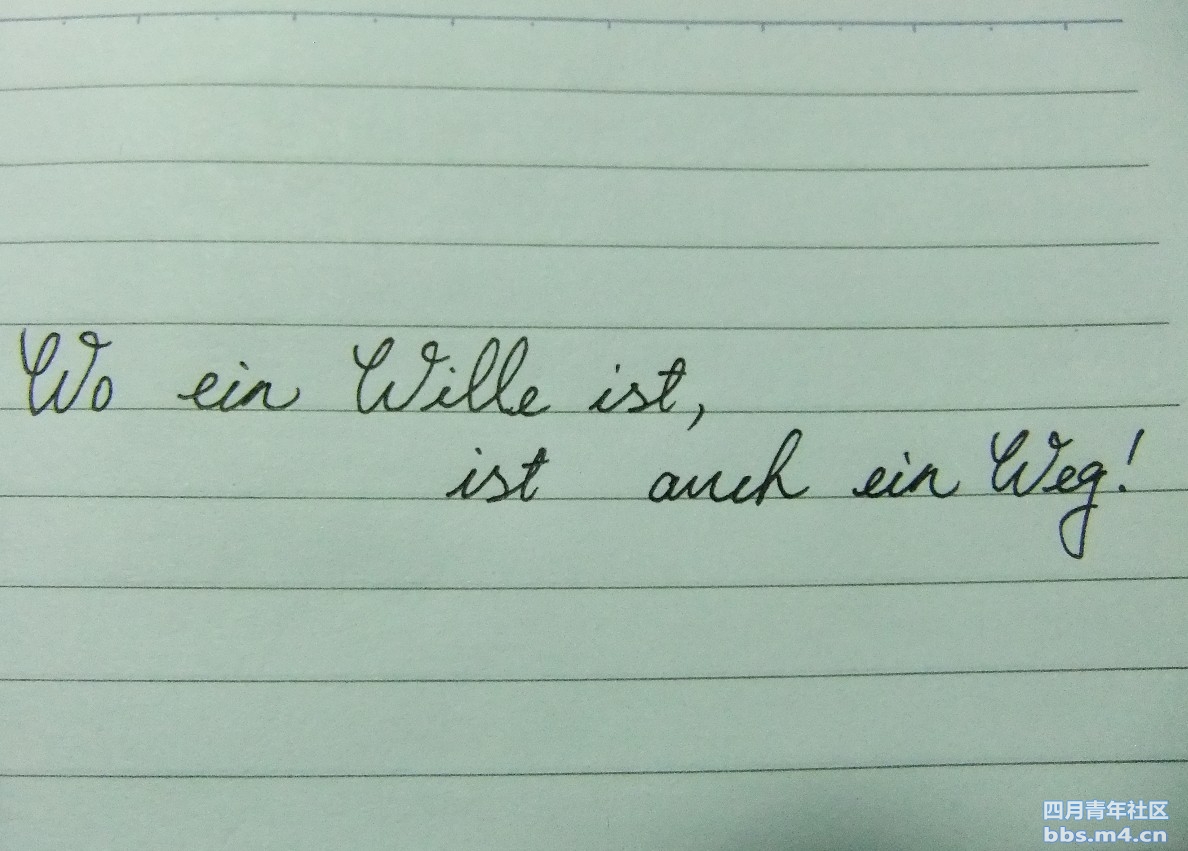 Wo ein Wille ist,
ist auch ein Weg!
四月青年社区
bbs.m4.cn